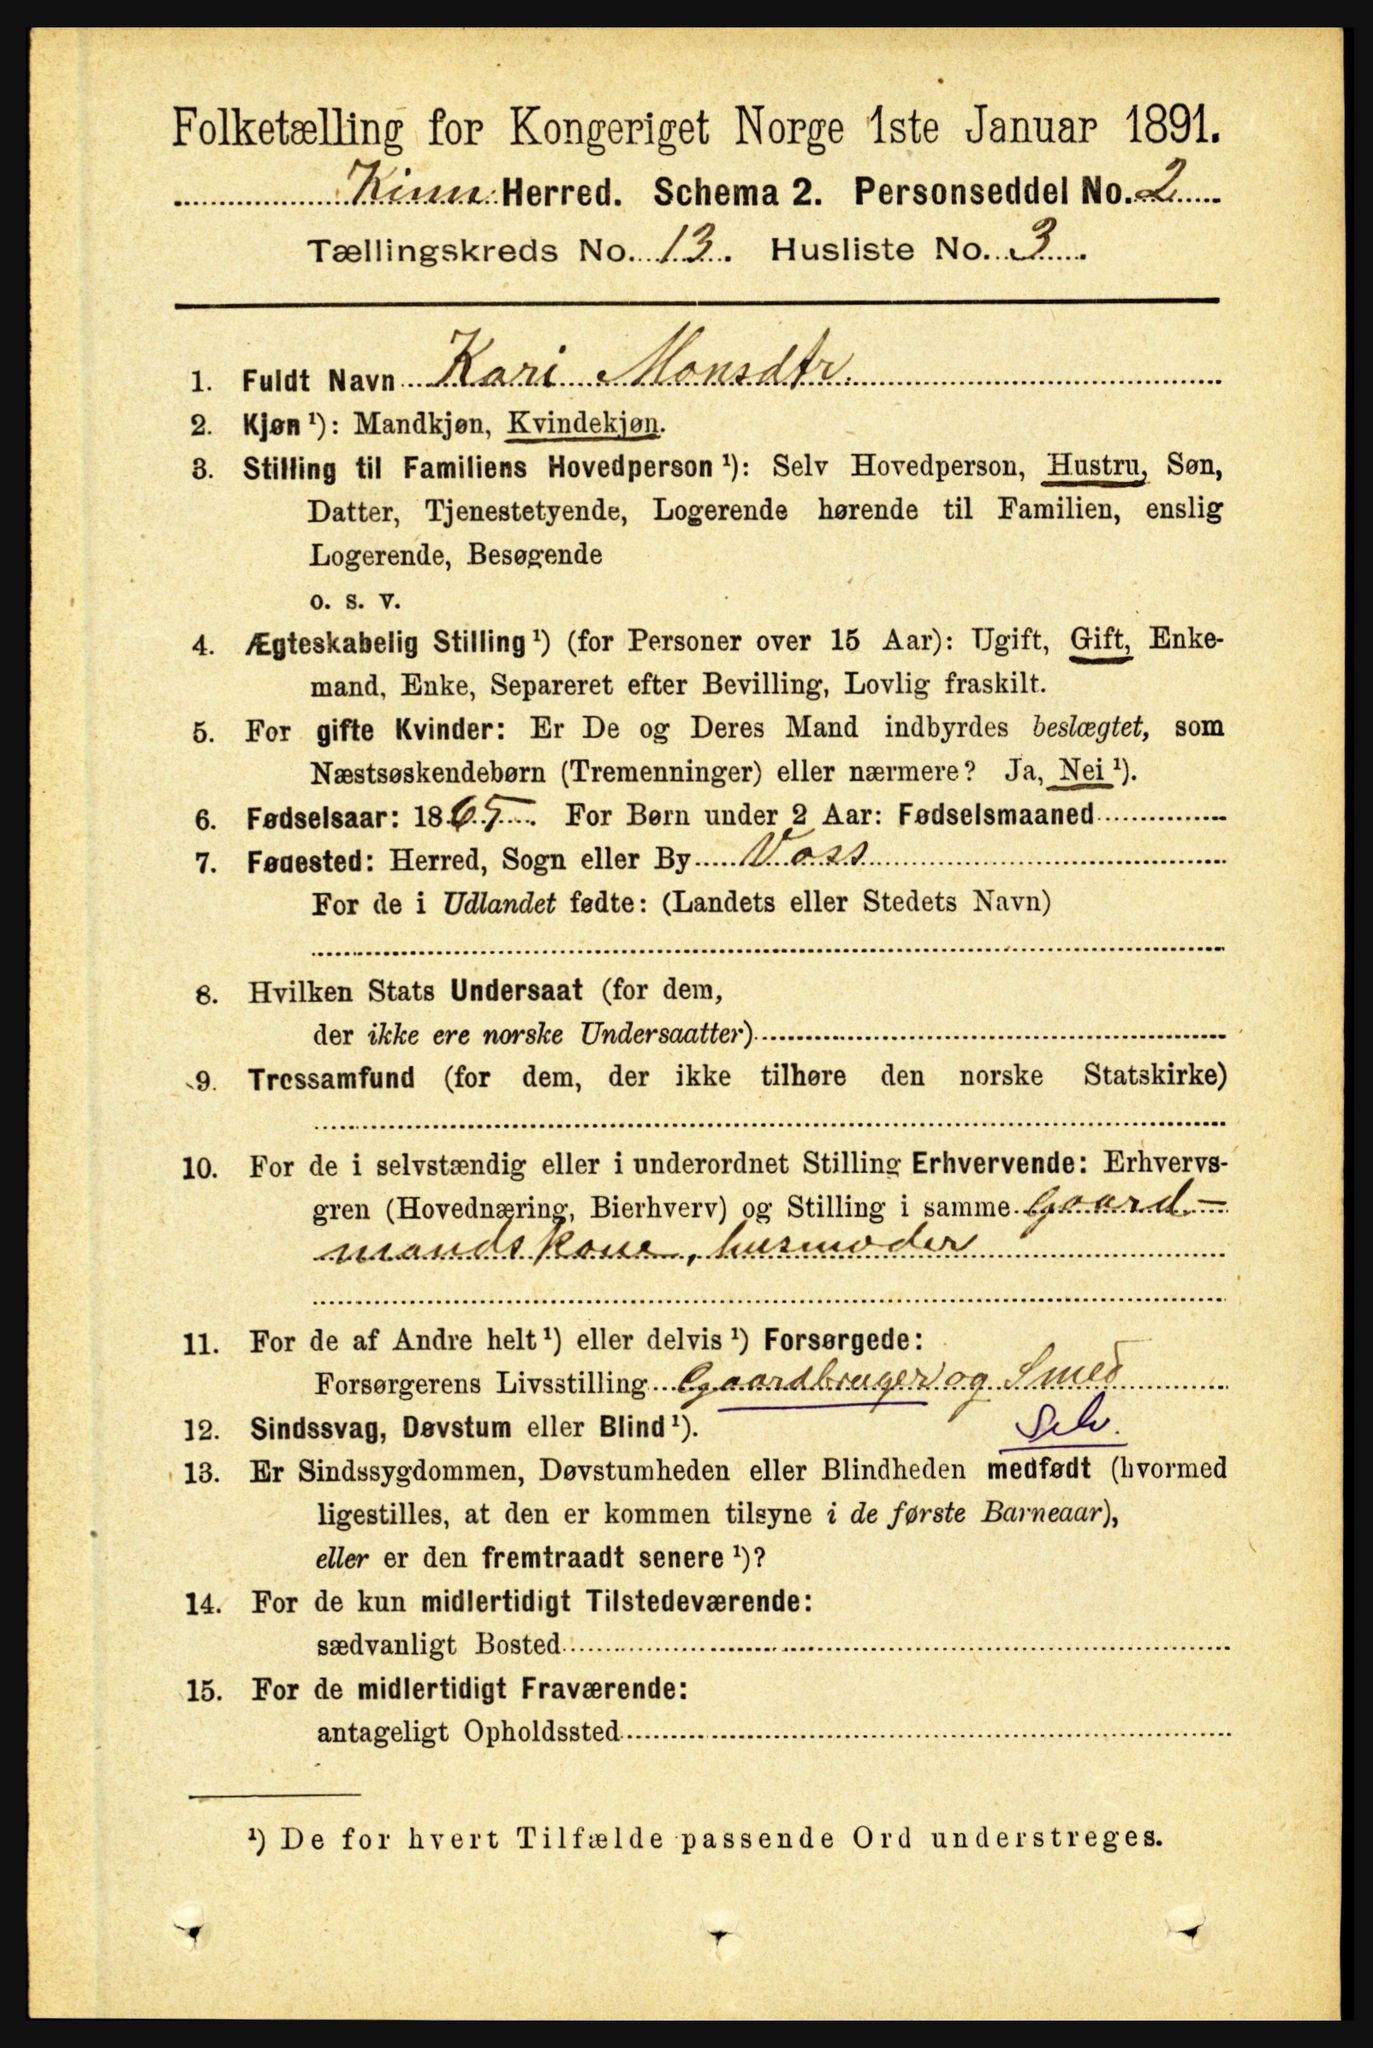 Folketælling for Kongeriget Norge 1ste Januar 1891.
Kinn Herred. Schema 2. Personseddel No. 2
Tællingskreds No. 13. Husliste No. 3
1. Fuldt Navn Kari Monsdtr.
2. Kjøn ¹): Mandkjøn, Kvindekjøn.
3. Stilling til Familiens Hovedperson ¹): Selv Hovedperson, Hustru, Søn,
Datter, Tjenestetyende, Logerende hørende til Familien, enslig
Logerende, Besøgende
o. s. v.
4. Ægteskabelig Stilling ¹) (for Personer over 15 Aar): Ugift, Gift, Enke-
mand, Enke, Separeret efter Bevilling, Lovlig fraskilt.
5. For gifte Kvinder: Er De og Deres Mand indbyrdes beslægtet, som
Næstsøskendebørn (Tremenninger) eller nærmere? Ja, Nei ¹).
6. Fødselsaar: 1865. For Børn under 2 Aar: Fødselsmaaned
7. Fødested: Herred, Sogn eller By Voss
For de i Udlandet fødte: (Landets eller Stedets Navn)
8. Hvilken Stats Undersaat (for dem,
der ikke ere norske Undersaatter)
9. Trossamfund (for dem, der ikke tilhøre den norske Statskirke)
10. For de i selvstændig eller i underordnet Stilling Erhvervende: Erhvervs-
gren (Hovednæring, Bierhverv) og Stilling i samme Gaard-
mandskone, husmoder
11. For de af Andre helt ¹) eller delvis ¹) Forsørgede:
Forsørgerens Livsstilling Gaardbruger og Smed
Selv.
12. Sindssvag, Døvstum eller Blind ¹).
13. Er Sindssygdommen, Døvstumheden eller Blindheden medfødt (hvormed
ligestilles, at den er kommen tilsyne i de første Barneaar),
eller er den fremtraadt senere ¹)?
14. For de kun midlertidigt Tilstedeværende:
sædvanligt Bosted
15. For de midlertidigt Fraværende:
antageligt Opholdssted
¹) De for hvert Tilfælde passende Ord understreges.